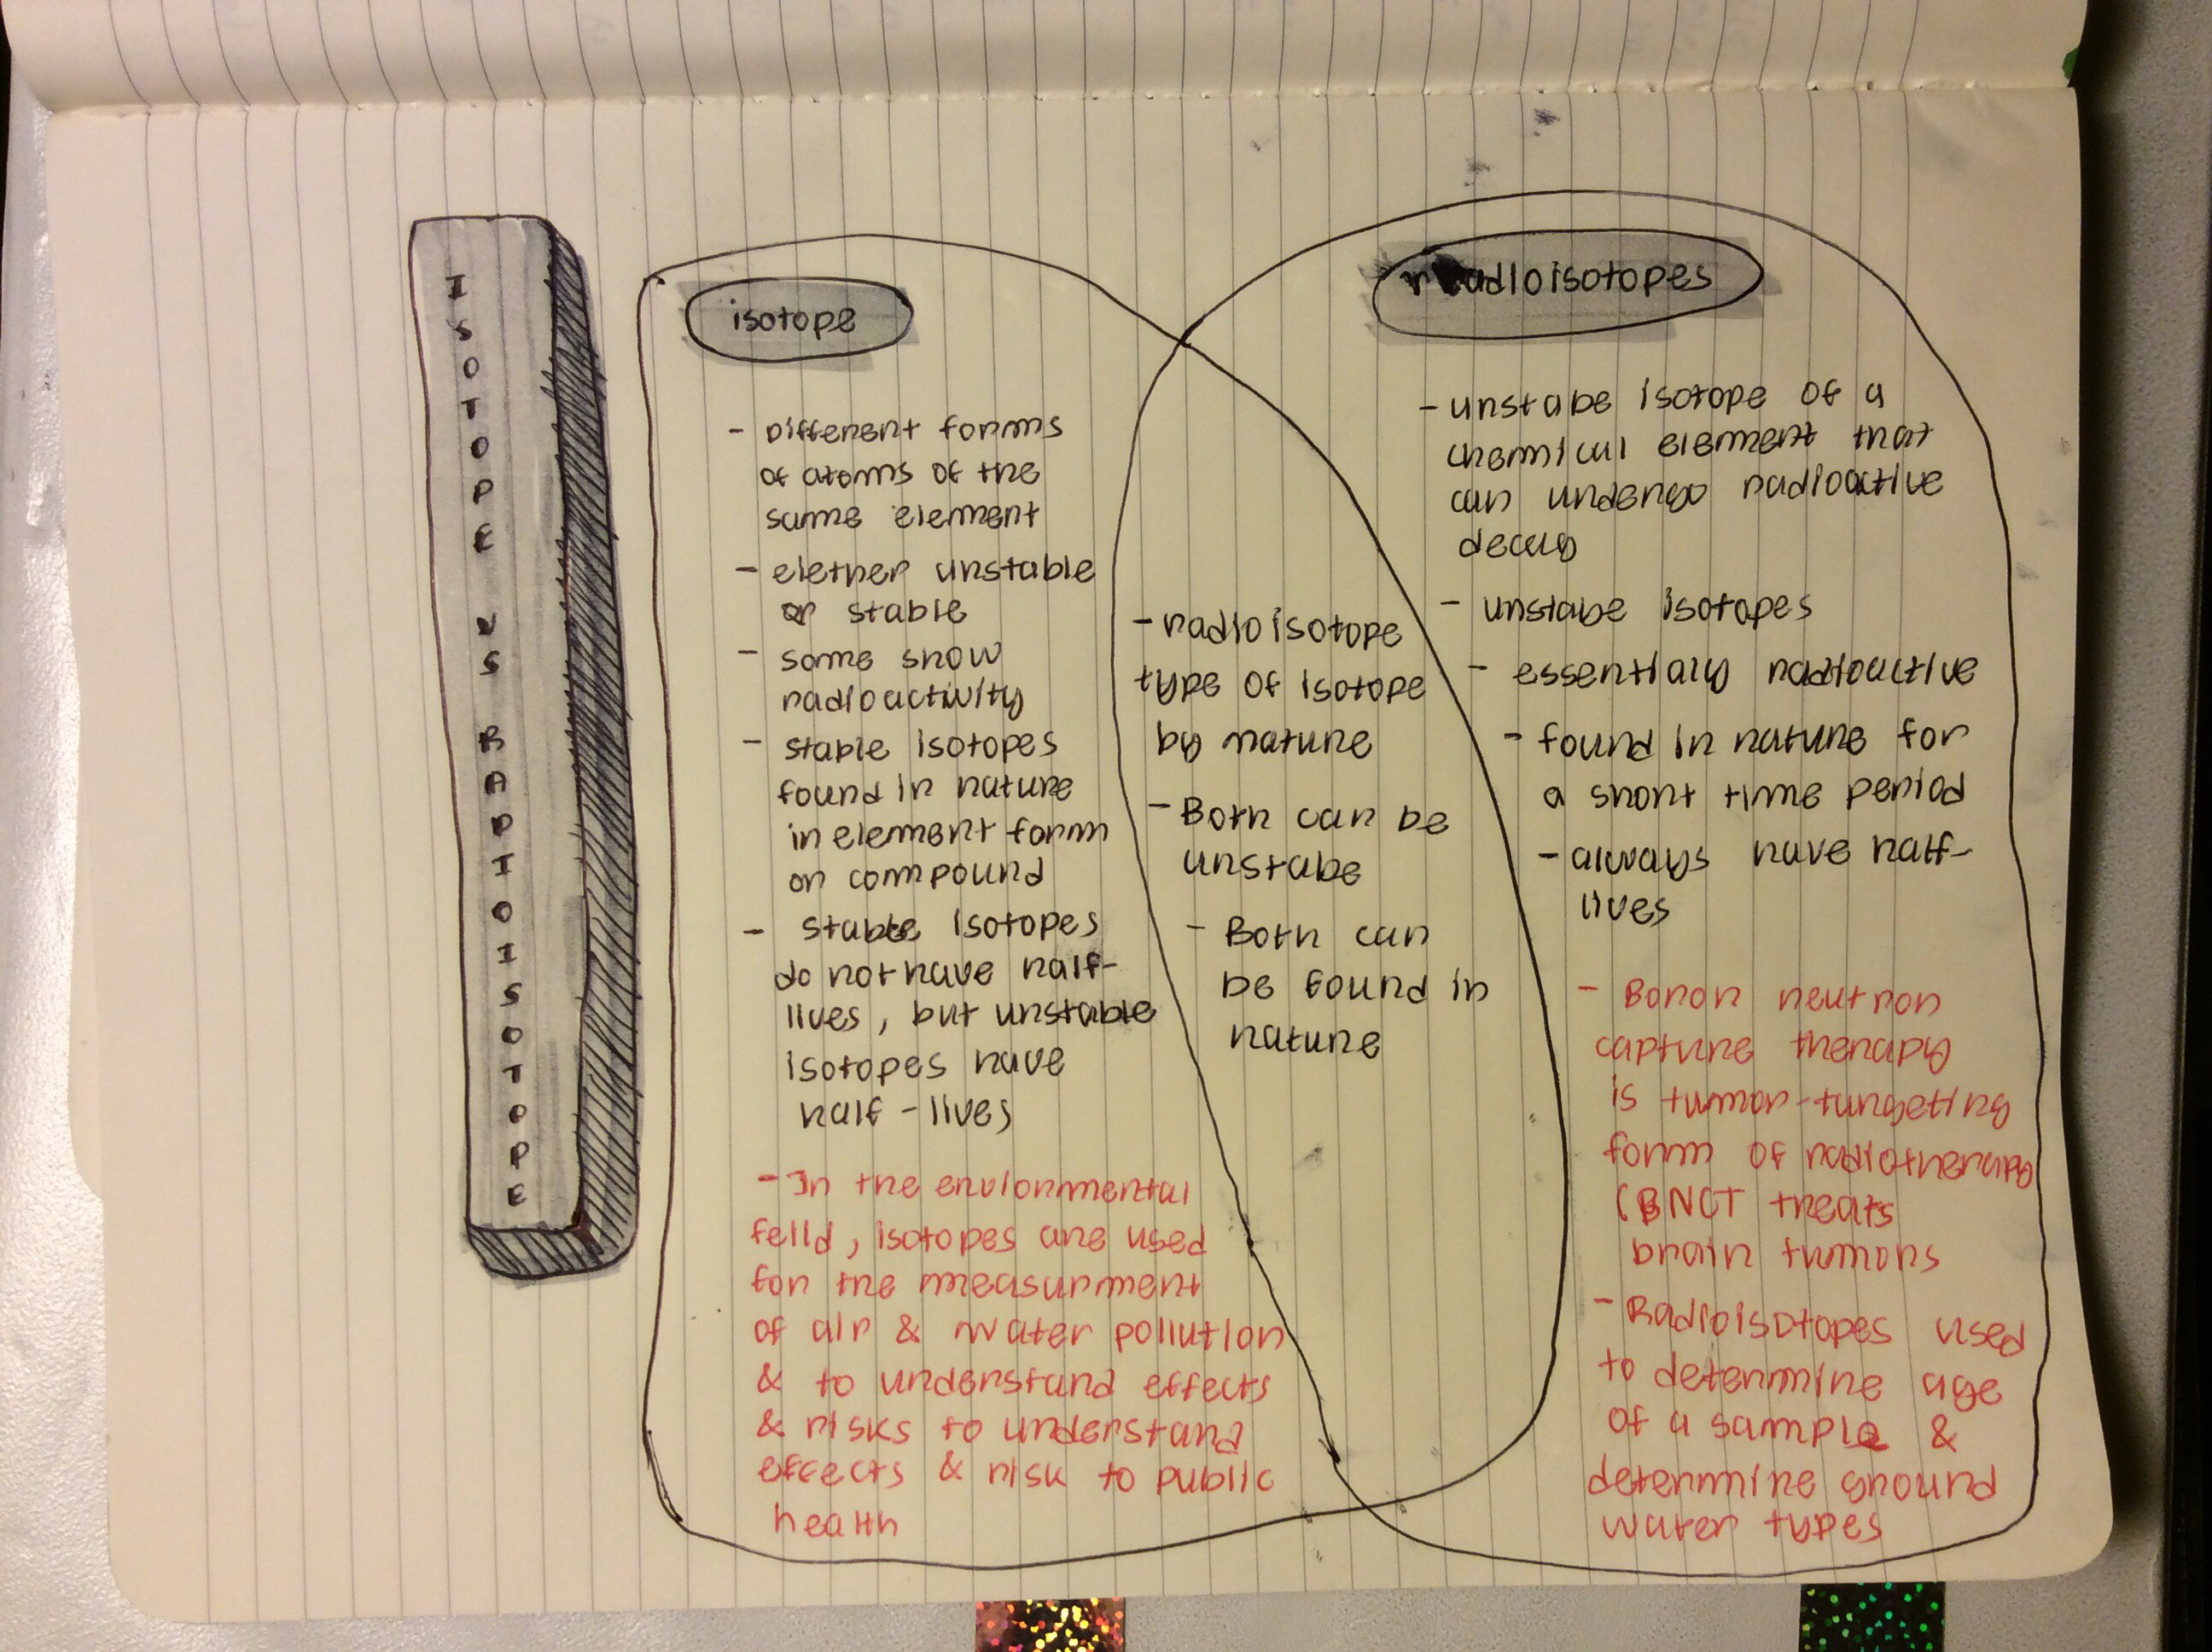 ISOTOPE VS RADIOISOTOPE
isotope
- Different forms
of atoms of the
same element
- eiether unstable
or stable
- some show
radioactivity
- stable isotopes
found in nature
in element form
or compound
- stable isotopes
do not have half-
lives, but unstable
isotopes have
half-lives
- In the enviornmental
feild, isotopes are used
for the measurment
of air & water pollution
& to understand effects
& risks to understand
effects & risk to public
health
- radioisotope
type of isotope
by nature
- Both can be
unstabe
- Both can
be found in
nature
radioisotopes
- unstabe isotope of a
chemical element that
can undergo radioactive
decay
- unstabe isotopes
- essentialy radioactive
- found in nature for
a short time period
- always have half-
lives
- Boron neutron
capture therapy
is tumor-targetting
form of radiotherapy
(BNCT treats
brain tumors
- Radioisotopes used
to determine age
of a sample &
determine ground
water types